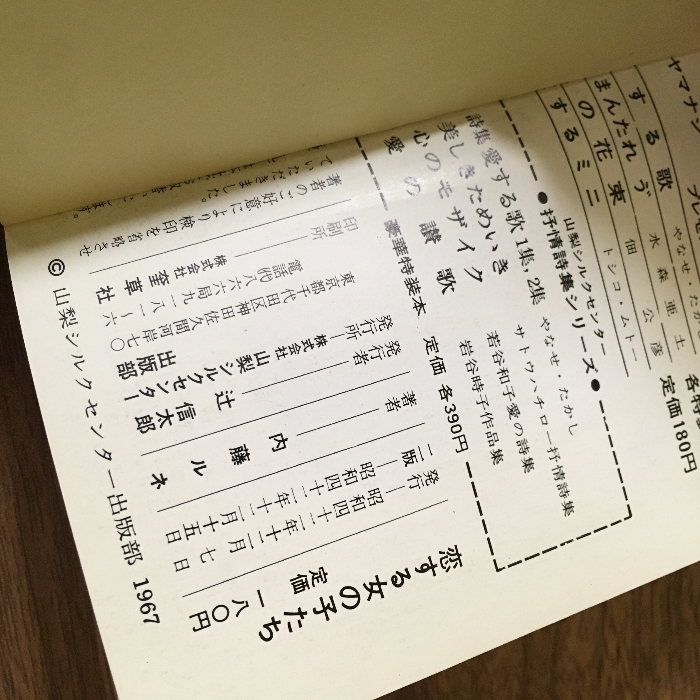 恋する女の子たち
定価 一八〇円
発行 昭和四十二年十一月十五日
二版 昭和四十二年十二月七日
著者 内藤ルネ
発行者 辻信太郎
発行所 株式会社 山梨シルクセンター出版部
東京都千代田区神田佐久間河岸七〇
電話代八六六局九一八一〜六
印刷所 株式会社 奎草社
著者のご好意により検印を省略させ
ていただきました。
© 山梨シルクセンター出版部 1967
山梨シルクセンター
●抒情詩集シリーズ●
詩集 愛する歌 1集, 2集 やなせ・たかし
美しきためいき サトウハチロー抒情詩集
心のモザイク 若谷和子愛の詩集
愛の讃歌 岩谷時子作品集
豪華特装本 定価 各390円
ヤマナシ
する歌 やなせ・たか
まんたれう 水森亜土
の花束 佃公彦
するミニ トシコ・ムトー
定価180円